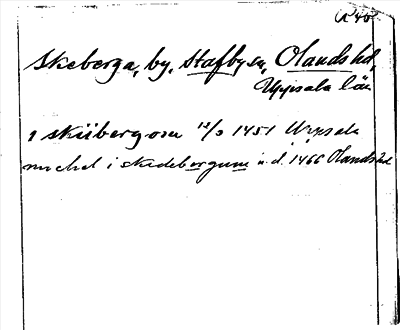 Skeberga, by, Stafby sn, Olands hd,
Uppsala län
i skübergom 12/3 1451 Uppsala
michel i skedebergum u.d. 1466 Olands hd